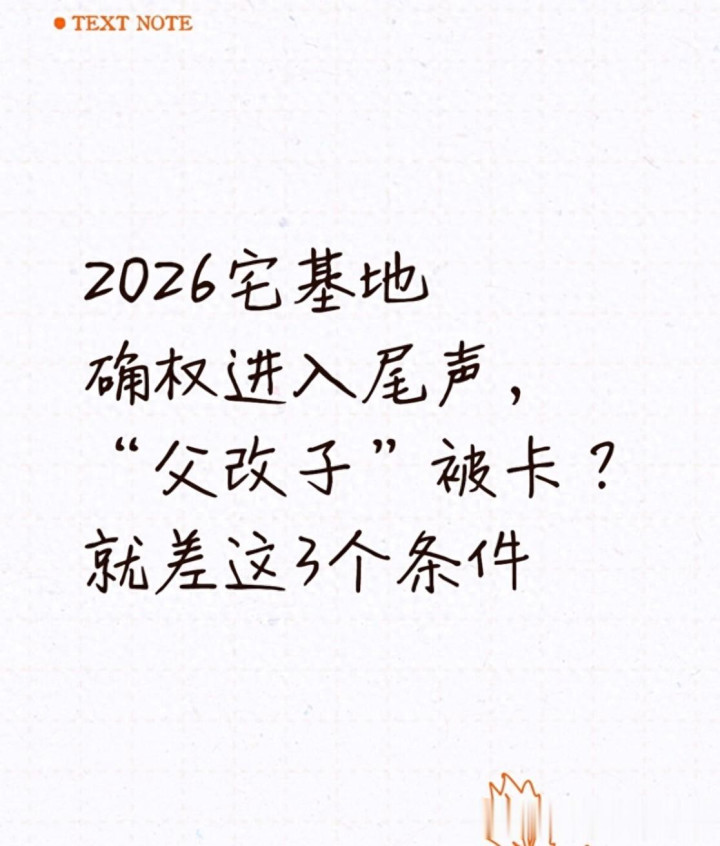 TEXT NOTE
2026宅基地
确权进入尾声，
“父改子”被卡？
就差这3个条件